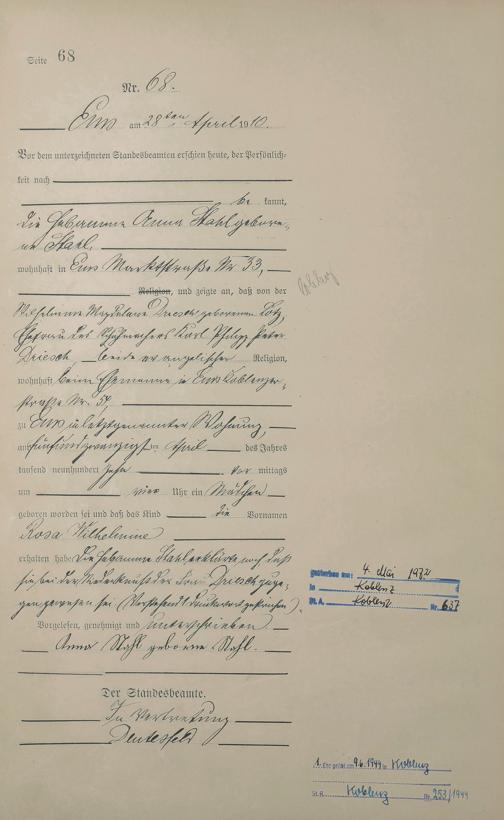 Seite 68
Nr. 68.
Ems am 28ten April 1910.
Vor dem unterzeichneten Standesbeamten erschien heute, der Persönlich-
keit nach
be kannt,
die Hebamme Anna Stahl gebore-
ne Stahl,
wohnhaft in Ems Marktstraße Nr. 33,
Religion, und zeigte an, daß von der
Wilhelmine Magdalene Driesch geborenen Lotz,
Ehefrau des Schuhmachers Karl Philipp Peter
Driesch, beide evangelischer Religion,
wohnhaft beim Ehemanne in Ems Koblenzer-
straße Nr. 54,
zu Ems in letztgenannter Wohnung,
am fünfundzwanzigsten April des Jahres
tausend neunhundert zehn vor mittags
um vier Uhr ein Mädchen
geboren worden sei und daß das Kind die Vornamen
Rosa Wilhelmine
erhalten habe. Die Hebamme Stahl erklärte noch daß
sie bei der Niederkunft der Frau Driesch zuge-
gen gewesen sei. (Vorstehend Druckwort gestrichen).
Vorgelesen, genehmigt und unterschrieben
Anna Stahl geborne Stahl.
Der Standesbeamte.
In Vertretung
gestorben am: 4. Mai 1972
in Koblenz
St. A. Koblenz Nr. 637
1. Ehe geschl. am 9.6.1944 in Koblenz
St. A. Koblenz Nr. 253/1944